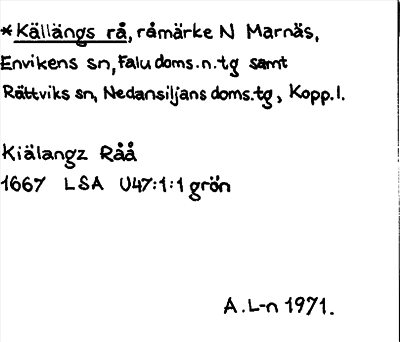 *Källängs rå, råmärke N Marnäs,
Envikens sn, Falu doms.n.tg samt
Rättviks sn, Nedansiljans doms.tg, Kopp.l.
Kiälangz Råå
1667 LSA U47:1:1 grön
A.L-n 1971.